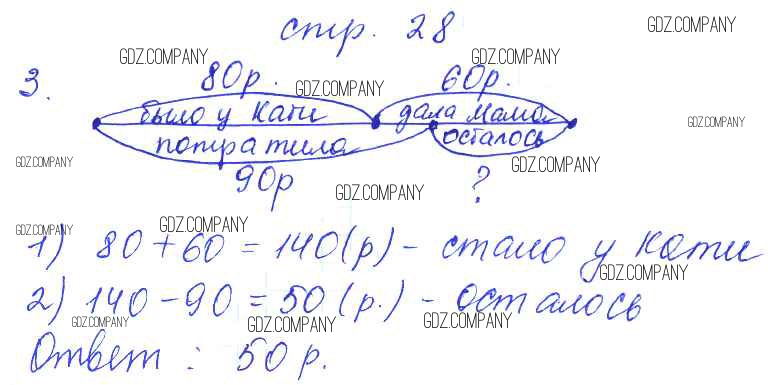 стр. 28
GDZ.COMPANY
GDZ.COMPANY
GDZ.COMPANY
3.
80р.
GDZ.COMPANY
60р.
было у Кати
дала мама
GDZ.COMPANY
потратила
осталось
GDZ.COMPANY
GDZ.COMPANY
90р
GDZ.COMPANY
?
GDZ.COMPANY
GDZ.COMPANY
1) 80+60=140(р) - стало у Кати
GDZ.COMPANY
2) 140-90=50(р.) - осталось
GDZ.COMPANY
GDZ.COMPANY
GDZ.COMPANY
Ответ: 50р.